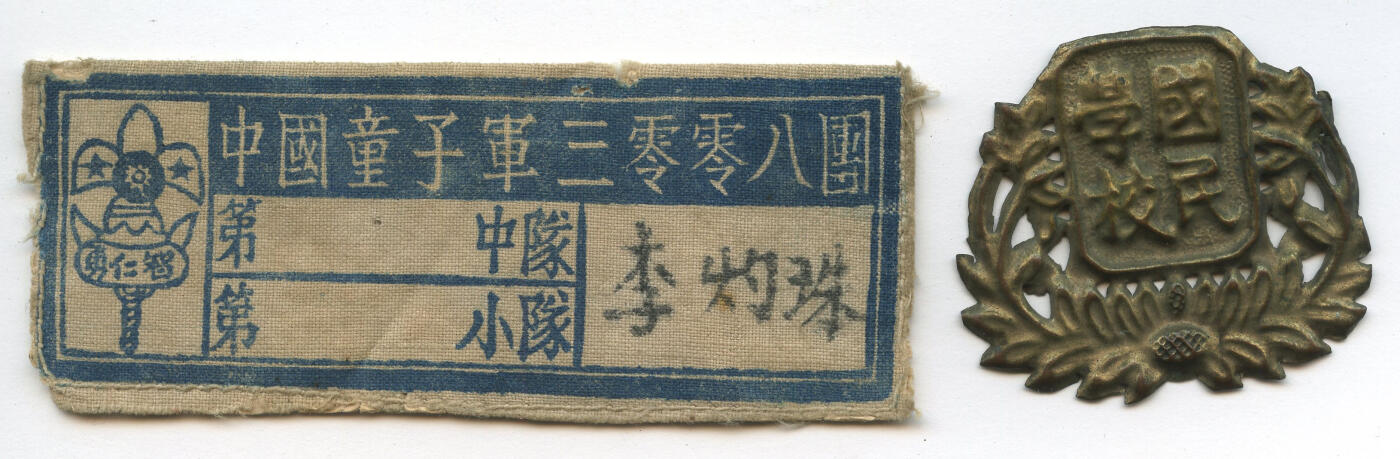 中國童子軍三零零八團
智仁勇
第 中隊
第 小隊
李灼珠
國民
學校